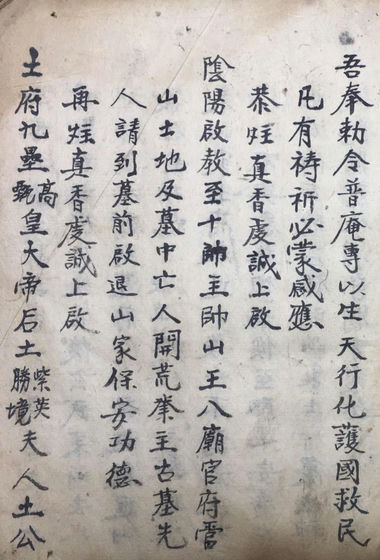 吾奉勅令普庵專以生天行化護國救民
凡有祷祈必蒙感應
恭炷真香虔誠上啟
陰陽啟教至十帥主帥山王八廟官府當
山土地及墓中亡人開荒業主古墓先
人請到墓前啟退山家保安功德
再炷真香虔誠上啟
土府九壘高甄皇大帝后土紫英勝境夫人土公